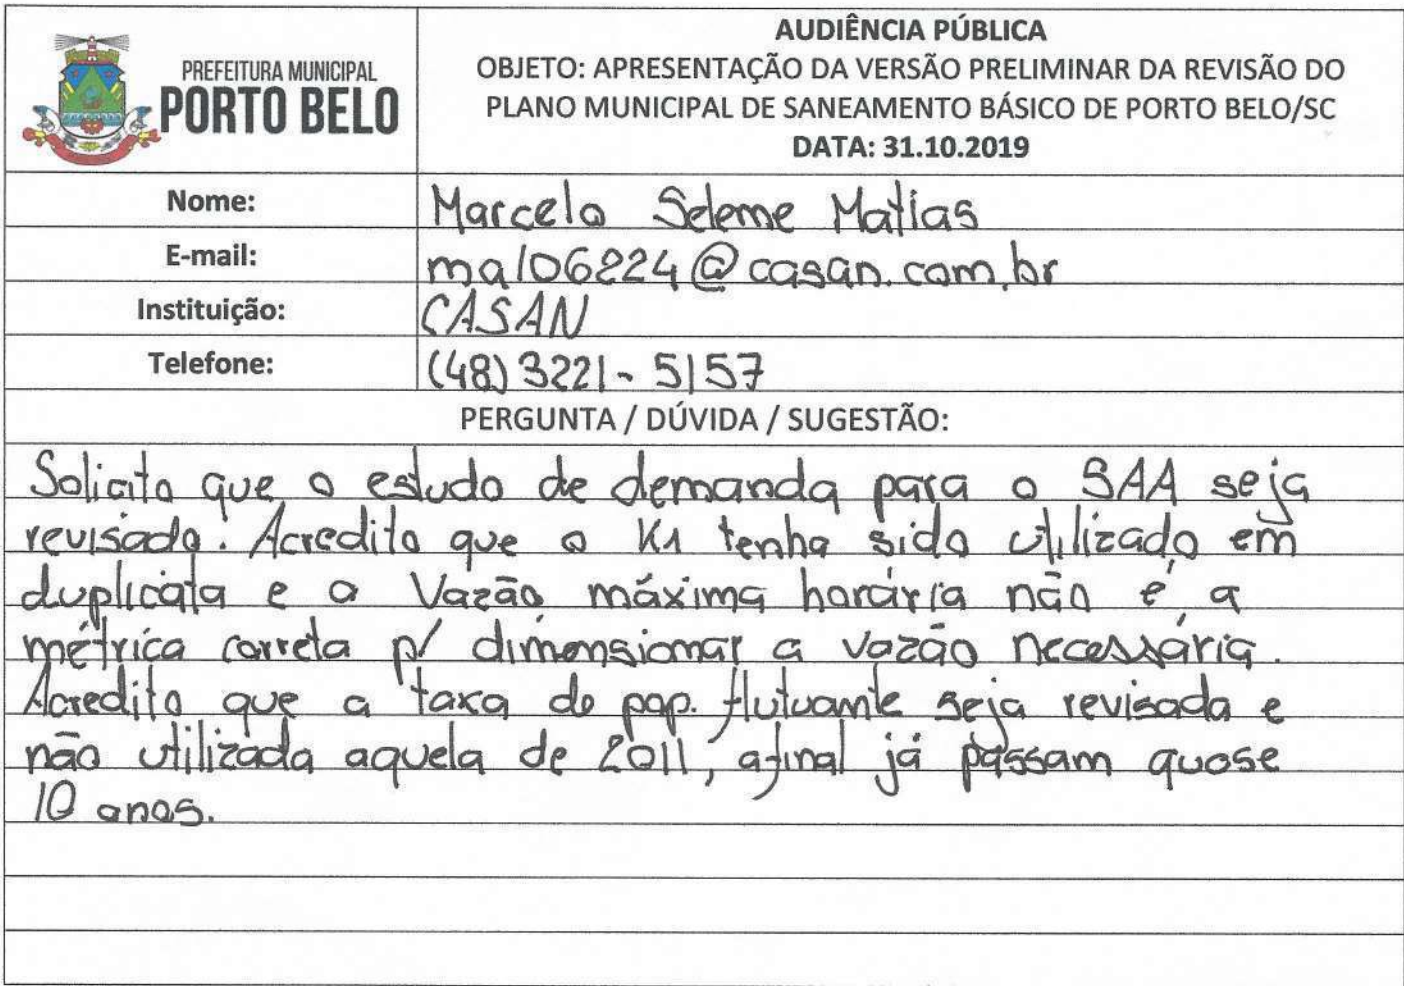 PREFEITURA MUNICIPAL
PORTO BELO
AUDIÊNCIA PÚBLICA
OBJETO: APRESENTAÇÃO DA VERSÃO PRELIMINAR DA REVISÃO DO
PLANO MUNICIPAL DE SANEAMENTO BÁSICO DE PORTO BELO/SC
DATA: 31.10.2019
Nome: Marcelo Seleme Matias
E-mail: mal06224@casan.com.br
Instituição: CASAN
Telefone: (48) 3221-5157
PERGUNTA / DÚVIDA / SUGESTÃO:
Solicito que o estudo de demanda para o SAA seja
revisado. Acredito que o K1 tenha sido utilizado em
duplicata e a Vazão máxima horária não é a
métrica correta p/ dimensionar a vazão necessária.
Acredito que a taxa de pop. flutuante seja revisada e
não utilizada aquela de 2011, afinal já passam quase
10 anos.